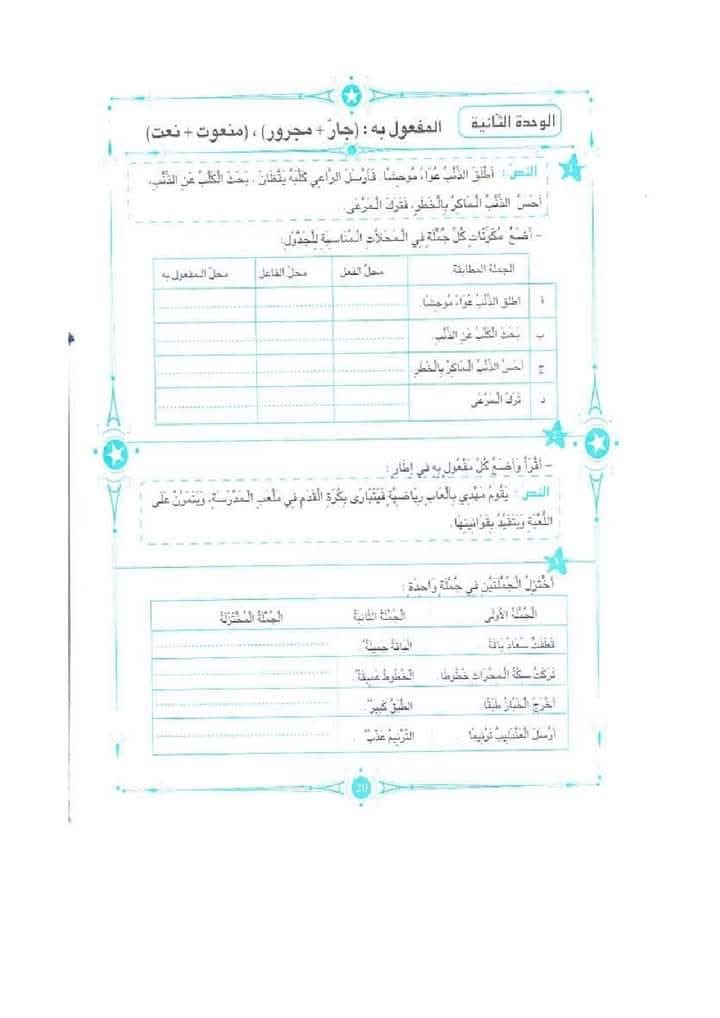 الوحدة الثانية
المفعول به : (جارّ + مجرور) ، (منعوت + نعت)
1
النصّ : أطْلَقَ الذِّئْبُ عُوَاءً مُوحِشًا فَأَرْسَلَ الرَّاعِي كَلْبَهُ يَقْظَانَ ، بَحَثَ الْكَلْبُ عَنِ الذِّئْبِ،
أَحَسَّ الذِّئْبُ الْمَاكِرُ بِالْخَطَرِ، فَتَرَكَ الْمَرْعَى.
– أَضَعُ مُكَوِّنَاتِ كُلِّ جُمْلَةٍ فِي الْمَحَلَّاتِ الْمُنَاسِبَةِ لِلْجَدْوَلِ:
الجملة المطابقة محلّ الفعل محلّ الفاعل محلّ المفعول به
أ اطلق الذِّئْبُ عُوَاءً مُوحِشًا.
ب بَحَثَ الْكَلْبُ عَنِ الذِّئْبِ.
ج أَحَسَّ الذِّئْبُ الْمَاكِرُ بِالْخَطَرِ
د تَرَكَ الْمَرْعَى
– أَقْرَأُ وَأَضَعُ كُلَّ مَفْعُولٍ بِهِ فِي إِطَارٍ :
النصّ : يَقُومُ مَهْدِي بِأَلْعَابٍ رِيَاضِيَّةٍ فَيَتَبَارَى بِكُرَةِ الْقَدَمِ فِي مَلْعَبِ الْمَدْرَسَةِ، وَيَتَمَرَّنُ عَلَى
اللُّعْبَةِ وَيَتَقَيَّدُ بِقَوَانِينِهَا.
أَخْتَزِلُ الْجُمْلَتَيْنِ فِي جُمْلَةٍ وَاحِدَةٍ :
الْجُمْلَةُ الأُولَى الْجُمْلَةُ الثَّانِيَةُ الْجُمْلَةُ الْمُخْتَزَلَةُ
قَطَفَتْ سُعَادُ بَاقَةً الْبَاقَةُ جَمِيلَةٌ.
تَرَكَتْ سِكَّةُ الْمِحْرَاثِ خُطُوطًا. الْخُطُوطُ عَمِيقَةٌ.
أَخْرَجَ الْخَبَّازُ طَبَقًا الطَّبَقُ كَبِيرٌ.
أَرْسَلَ الْعَنْدَلِيبُ تَرْنِيمًا التَّرْنِيمُ عَذْبٌ.
20